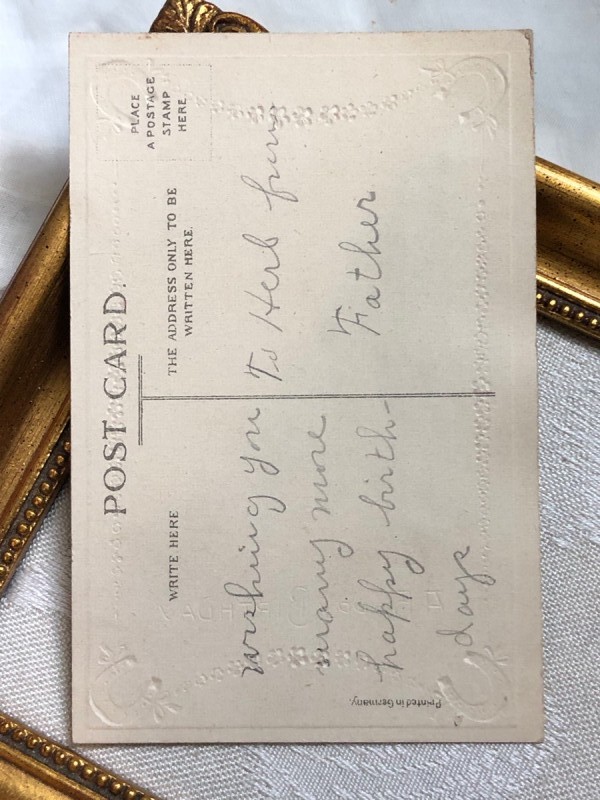 POST CARD.
WRITE HERE
wishing you
many more
happy birth-
days
THE ADDRESS ONLY TO BE
WRITTEN HERE.
PLACE
A POSTAGE
STAMP
HERE
To Herb from
Father
Printed in Germany.